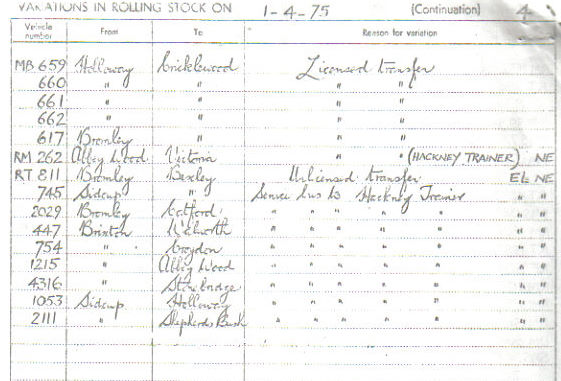 VARIATIONS IN ROLLING STOCK ON 1-4-75 (Continuation) 4
Vehicle number From To Reason for variation
MB 659 Holloway Cricklewood Licensed transfer
660 " " " "
661 " " " "
662 " " " "
617 Bromley " " "
RM 262 Abbey Wood Victoria " " (HACKNEY TRAINER) NE
RT 811 Bromley Bexley Unlicensed transfer EL NE
745 Sidcup " Service bus to Hackney Trainer " "
2029 Bromley Catford " " " " " " "
447 Brixton Walworth " " " " " " "
754 " Croydon " " " " " " "
1215 " Abbey Wood " " " " " " "
4316 " Stonebridge " " " " " " "
1053 Sidcup Holloway " " " " " " "
2111 " Shepherds Bush " " " " " " "